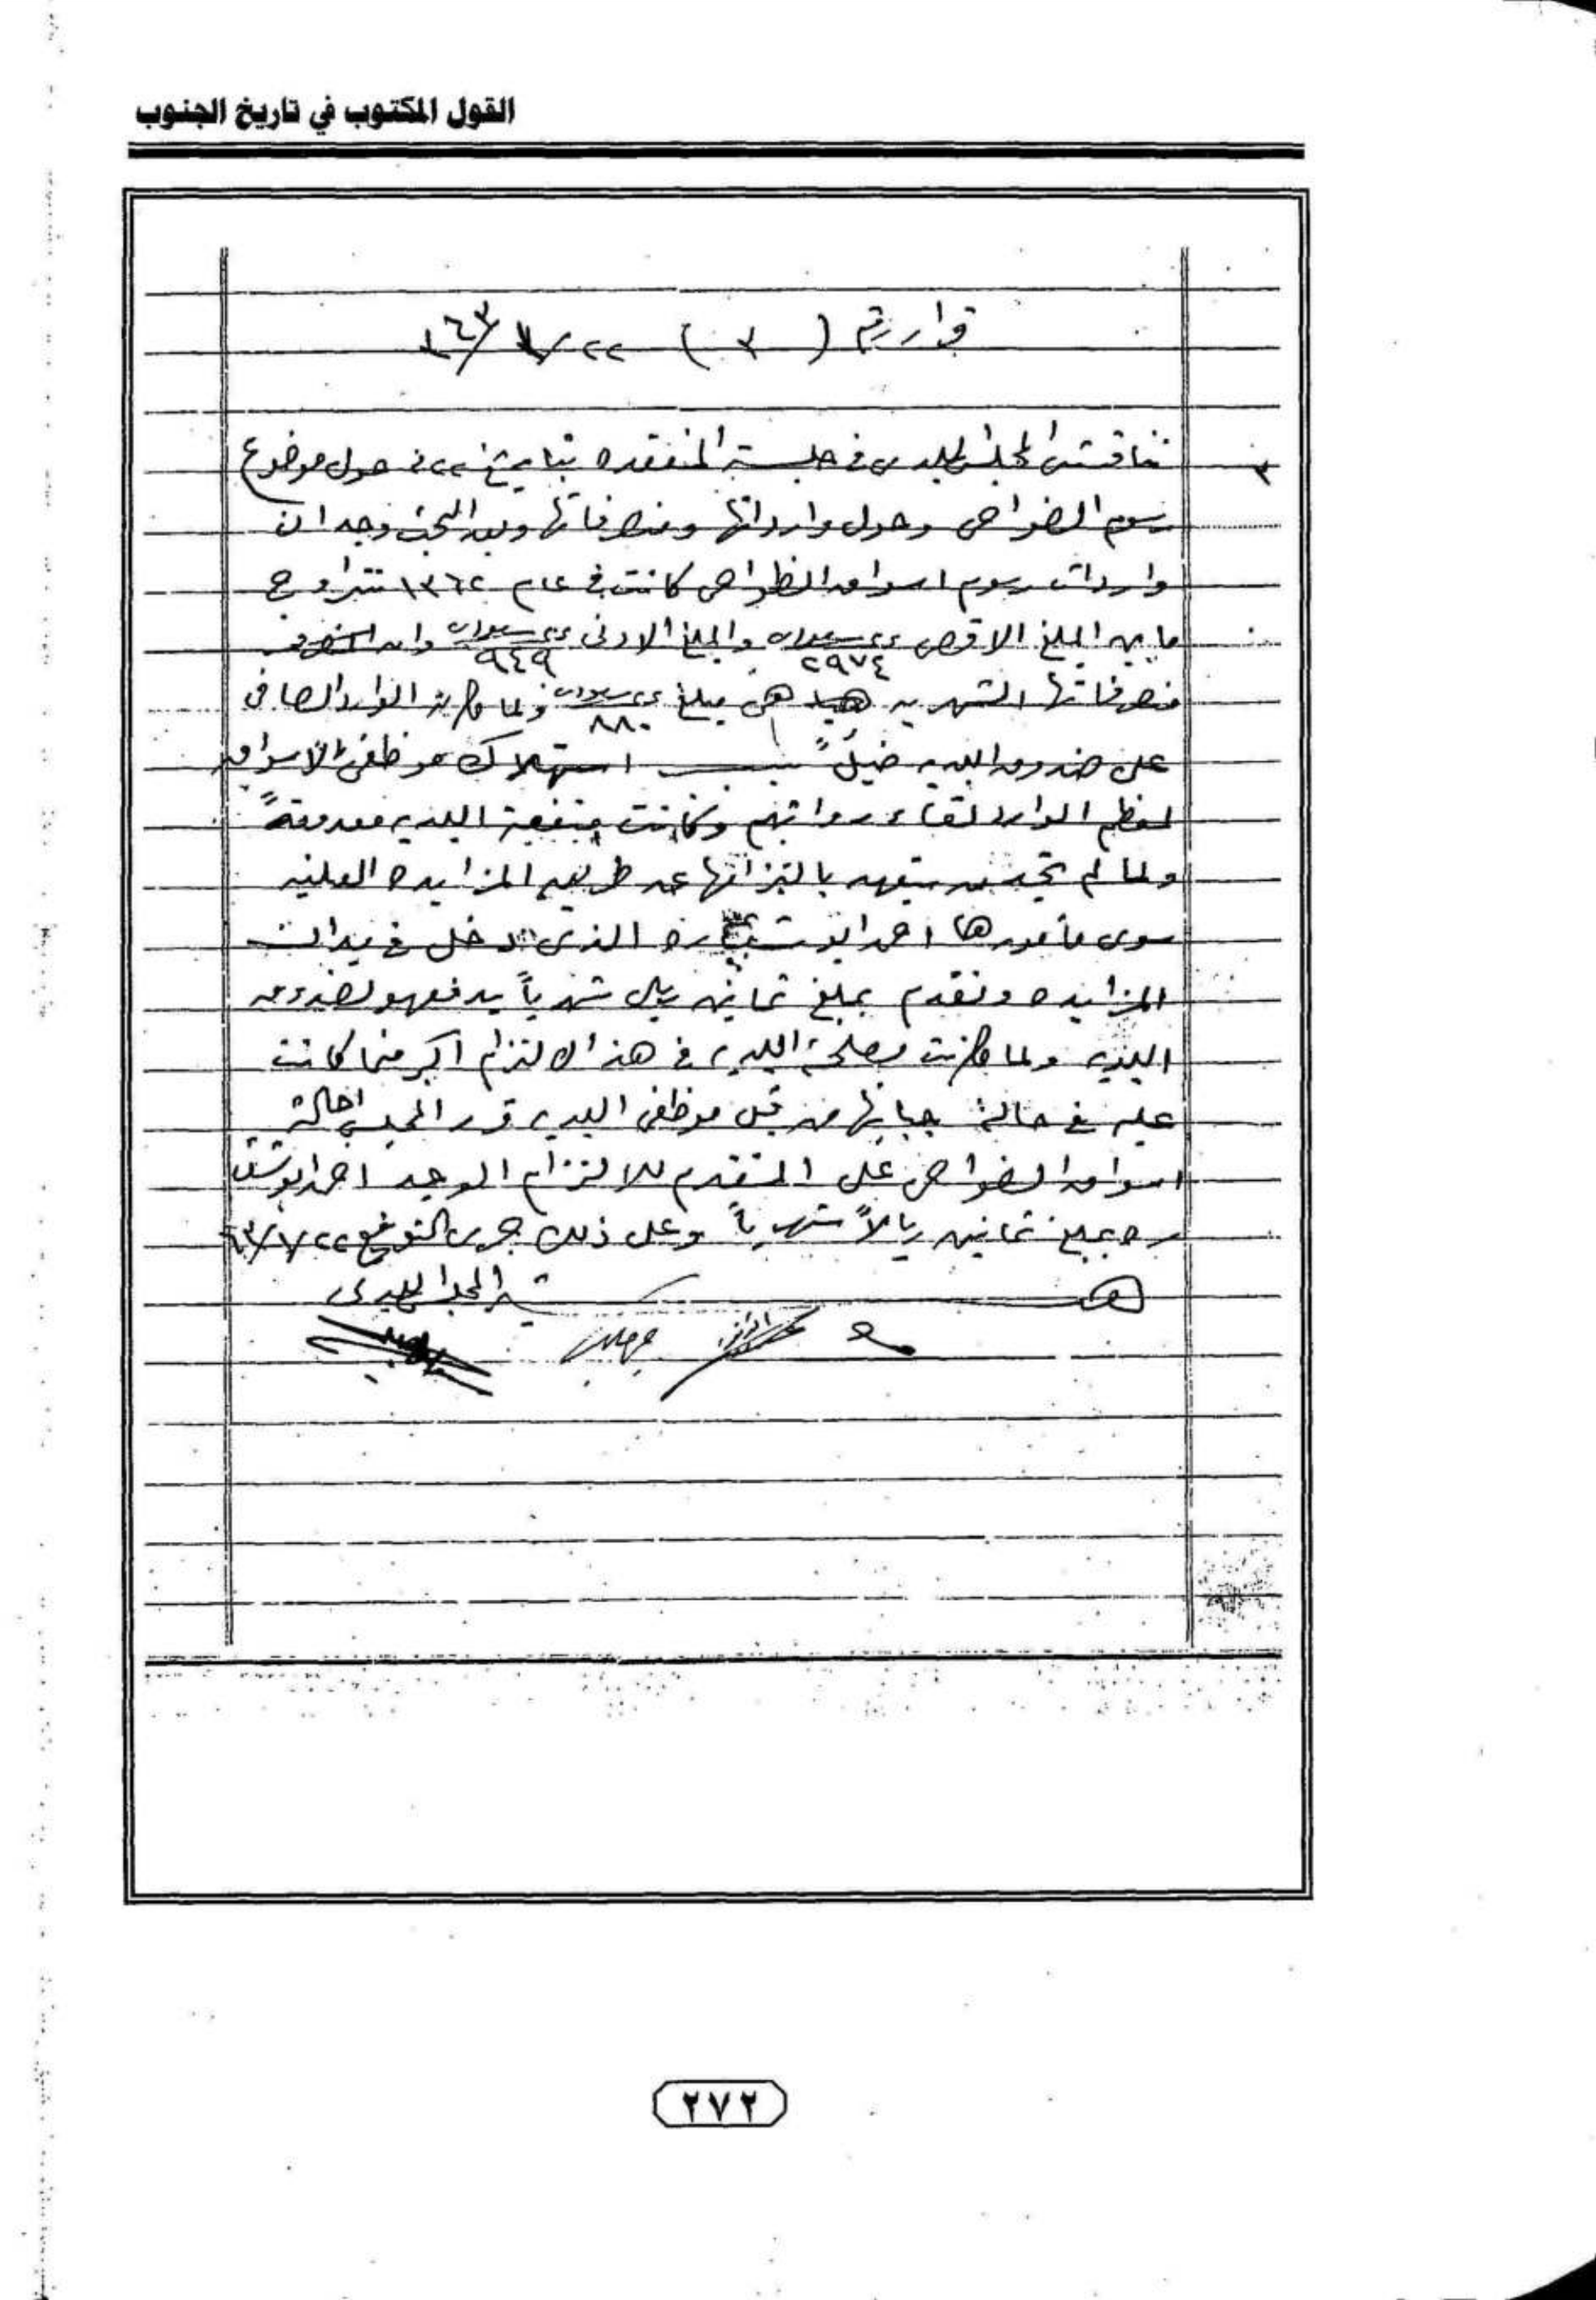 القول المكتوب في تاريخ الجنوب
قرار رقم ( ٣ ) ٢٢/٧/٣٦٣
٣ ناقش المجلس البلدي في جلسته المنعقده بتاريخ حول موضوع
رسوم الضواحي وحول وارداتها ومنصرفاتها وبعد البحث وجد ان
واردات رسوم اسواق الظواحي كانت في عام ١٣٦٢ تتراوح
ما بين المبلغ الاقصى ٢٩٧٤ والمبلغ الادنى ٩٤٩ وان
منصرفاتها الشهريه هي مبلغ ٨٨٠ ولما كان الوارد الصافي
على صندوق البلديه ضئيلاً بسبب استهلاك موظفي الاسواق
لمعظم الوارد لقاء رواتبهم وكانت منفعة البلديه معدومةً
ولما لم تجد من يتعهد بالتزامها عن طريق المزايده العلنيه
سوى مأمورها احمد ابو الذي دخل في ميدان
المزايده وتقدم بمبلغ ثمانين ريال شهرياً يدفعهو لصندوق
البلديه ولما كانت مصلحة البلديه في هذا الالتزام اكبر مما كانت
عليه في حالة جبايتها من قبل موظفي البلديه قرر المجلس احالة
اسواق الضواحي على المتقدم للالتزام الوحيد احمد
بمبلغ ثمانين ريالاً شهرياً وعلى ذلك جرى التوقيع ٢٢/٧/٦٣
المجلس البلدي
٢٧٢